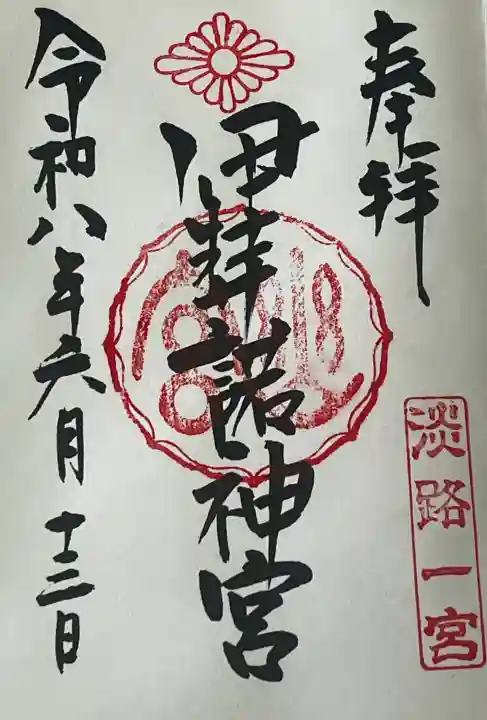 奉拝
淡路一宮
伊弉諾神宮
令和八年六月十三日